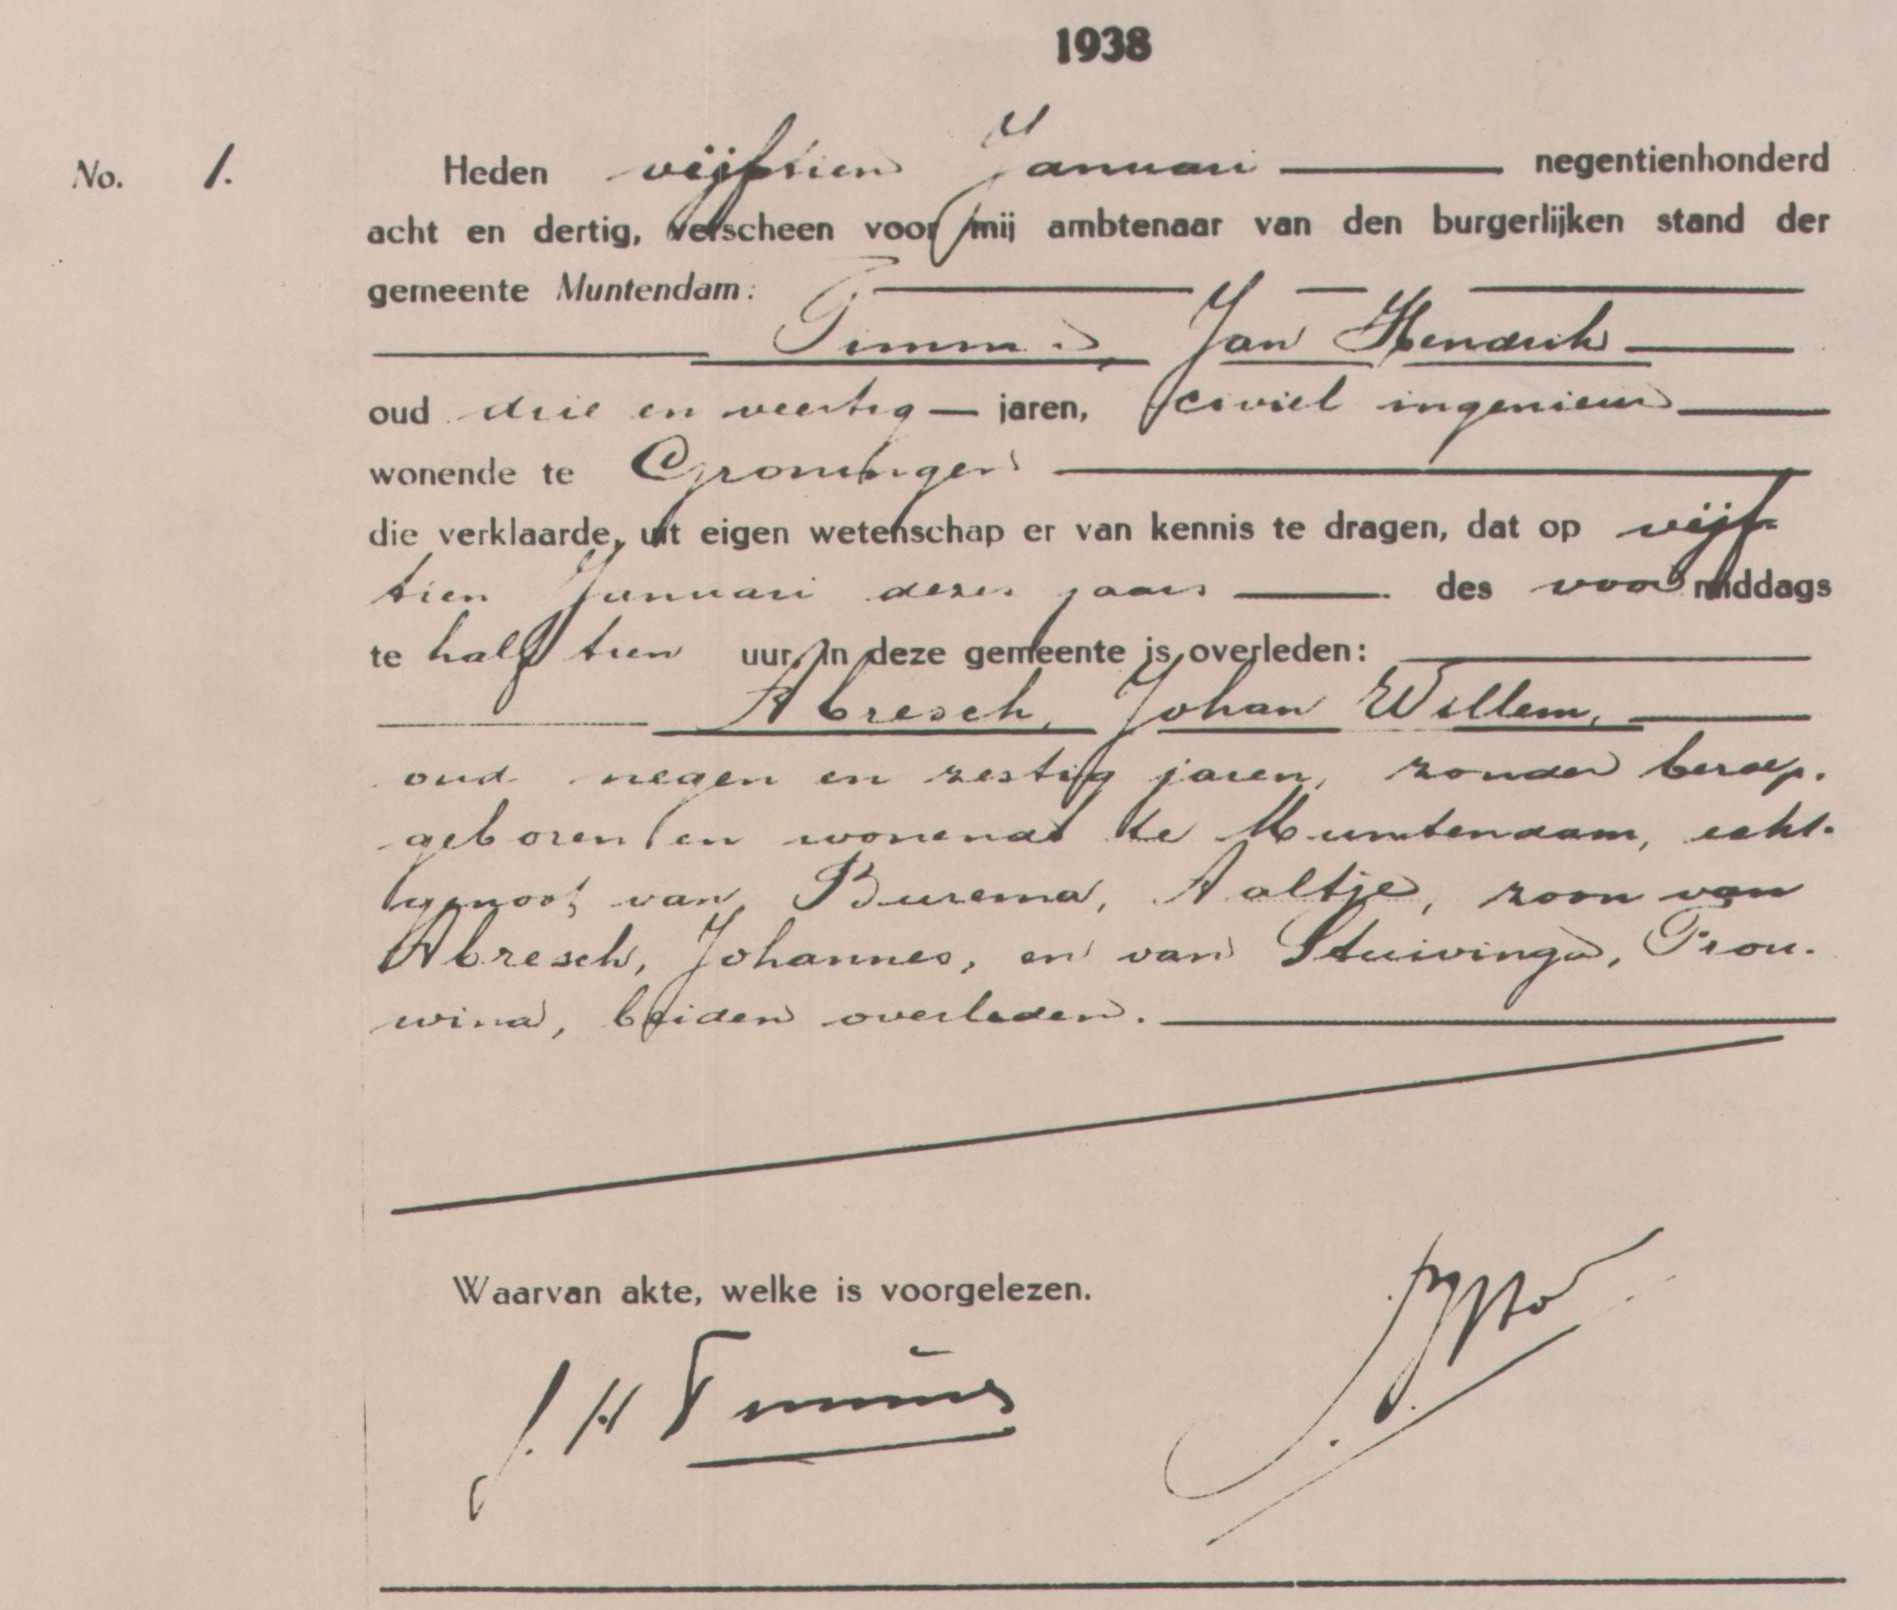 1938
No. 1.
Heden vijftien Januari negentienhonderd
acht en dertig, verscheen voor mij ambtenaar van den burgerlijken stand der
gemeente Muntendam:
Timmer, Jan Hendrik
oud drie en veertig jaren, civiel ingenieur
wonende te Groningen
die verklaarde, uit eigen wetenschap er van kennis te dragen, dat op vijf-
tien Januari dezes jaars des voormiddags
te half tien uur, in deze gemeente is overleden:
Abresch, Johan Willem,
oud negen en zestig jaren, zonder beroep,
geboren en wonende te Muntendam, echt-
genoot van Burema, Aaltje, zoon van
Abresch, Johannes, en van Stuivinga, Frou-
wina, beiden overleden.
Waarvan akte, welke is voorgelezen.
J. H. Timmer